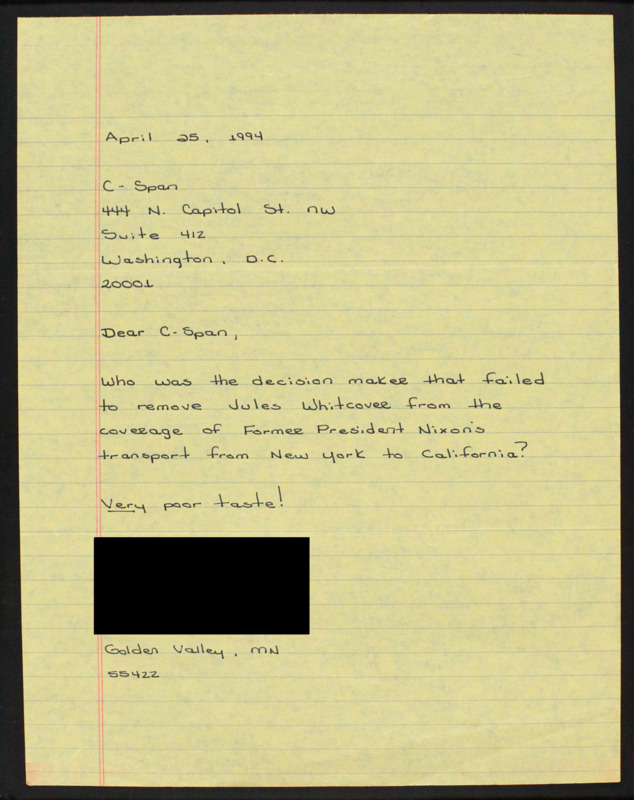 April 25, 1994
C-Span
444 N. Capitol St. NW
Suite 412
Washington, D.C.
20001
Dear C-Span,
Who was the decision maker that failed
to remove Jules Whitcover from the
coverage of Former President Nixon's
transport from New York to California?
Very poor taste!
Golden Valley, MN
55422